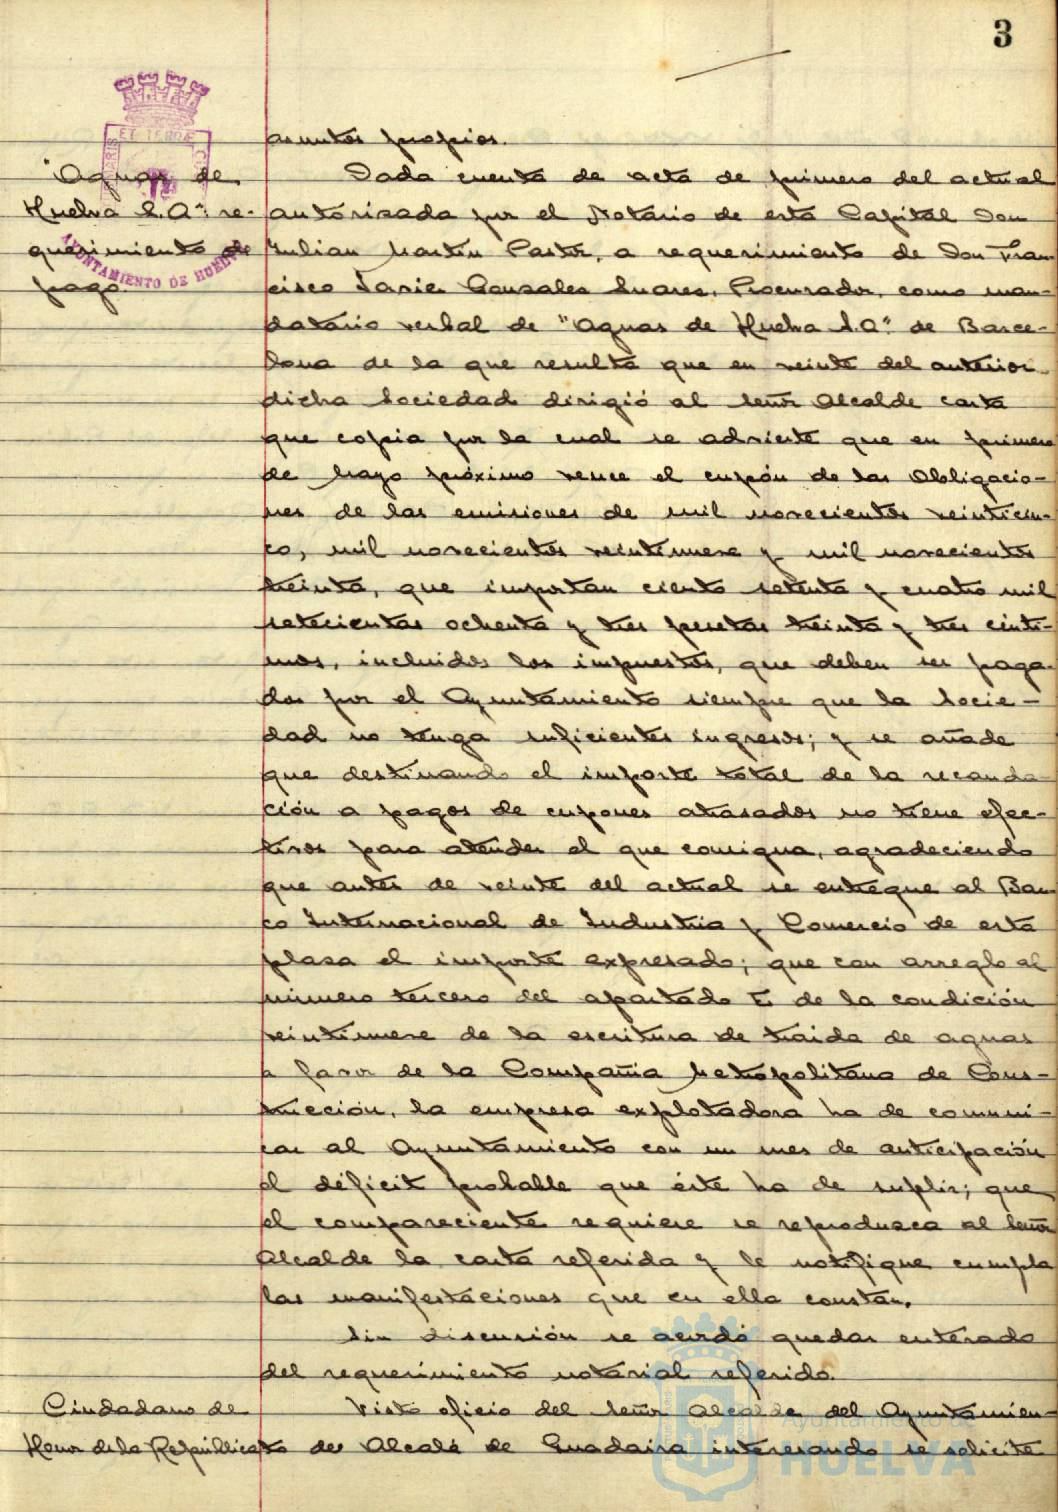 3
asuntos propios.
"Aguas de
Huelva S.A": re-
querimiento de
pago
Dada cuenta de acta de primero del actual
autorizada por el Notario de esta Capital Don
Julian Martin Pastor, a requerimiento de Don Fran
cisco Javier Gonzales Suares, Procurador, como man-
datario verbal de "Aguas de Huelva S.A" de Barce-
lona de la que resulta que en veinte del anterior
dicha Sociedad dirigió al señor Alcalde carta
que copia por la cual se advierte que en primero
de Mayo próximo vence el cupón de las Obligacio-
nes de las emisiones de mil novecientos veinticin-
co, mil novecientos veintinueve y mil novecientos
treinta, que importan ciento setenta y cuatro mil
setecientas ochenta y tres pesetas treinta y tres cénti-
mos, incluidos los impuestos, que deben ser paga-
dos por el Ayuntamiento siempre que la Socie-
dad no tenga suficientes ingresos; y se añade
que destinando el importe total de la recauda
ción a pagos de cupones atrasados no tiene efec-
tivos para atender el que consigna, agradeciendo
que antes de veinte del actual se entregue al Ban
co Internacional de Industria y Comercio de esta
plasa el importe expresado; que con arreglo al
número tercero del apartado E de la condición
veintinueve de la escritura de traida de aguas
a favor de la Compañia Metropolitana de Cons-
trucción, la empresa explotadora ha de comuni-
car al Ayuntamiento con un mes de anticipación
el déficit probable que éste ha de suplir; que
el compareciente requiere se reprodusca al señor
Alcalde la carta referida y le notifique cumpla
las manifestaciones que en ella constan.
Sin discusión se acordó quedar enterado
del requerimiento notarial referido.
Ciudadano de
Honor de la República
Visto oficio del señor Alcalde del Ayuntamien-
to de Alcalá de Guadaira interesando se solicite
AYUNTAMIENTO DE HUELVA
Ayuntamiento de
HUELVA